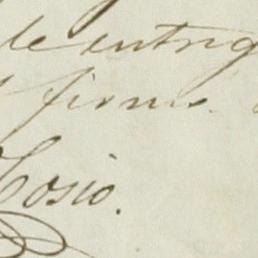 de entrig
firma
Cosio.